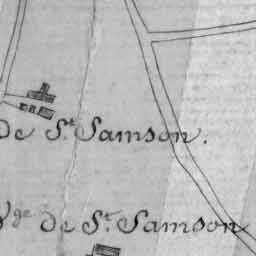 de St. Samson.
Vge de St. Samson